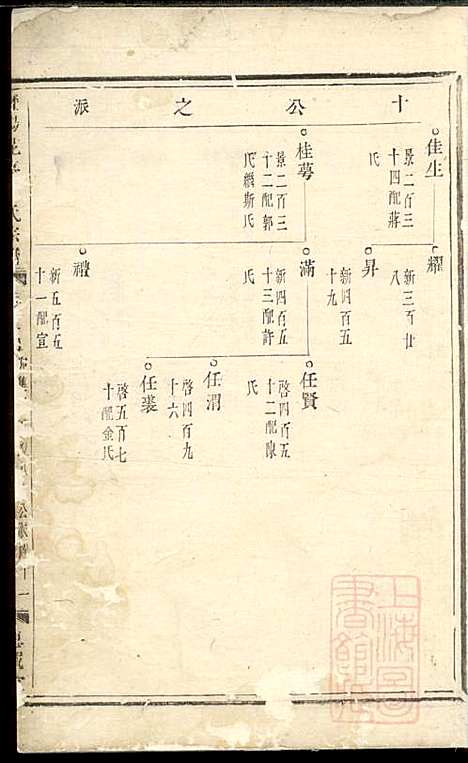 十公之派
佳生
景二百三
十四配蔣
氏
桂萼
景二百三
十二配郭
氏繼斯氏
耀
新三百廿
八
昇
新四百五
十九
滿
新四百五
十三配許
氏
禮
新五百五
十一配宣
任賢
啓四百五
十二配陳
氏
任渭
啓四百九
十六
任裘
啓五百七
十配金氏
上海圖
書館藏